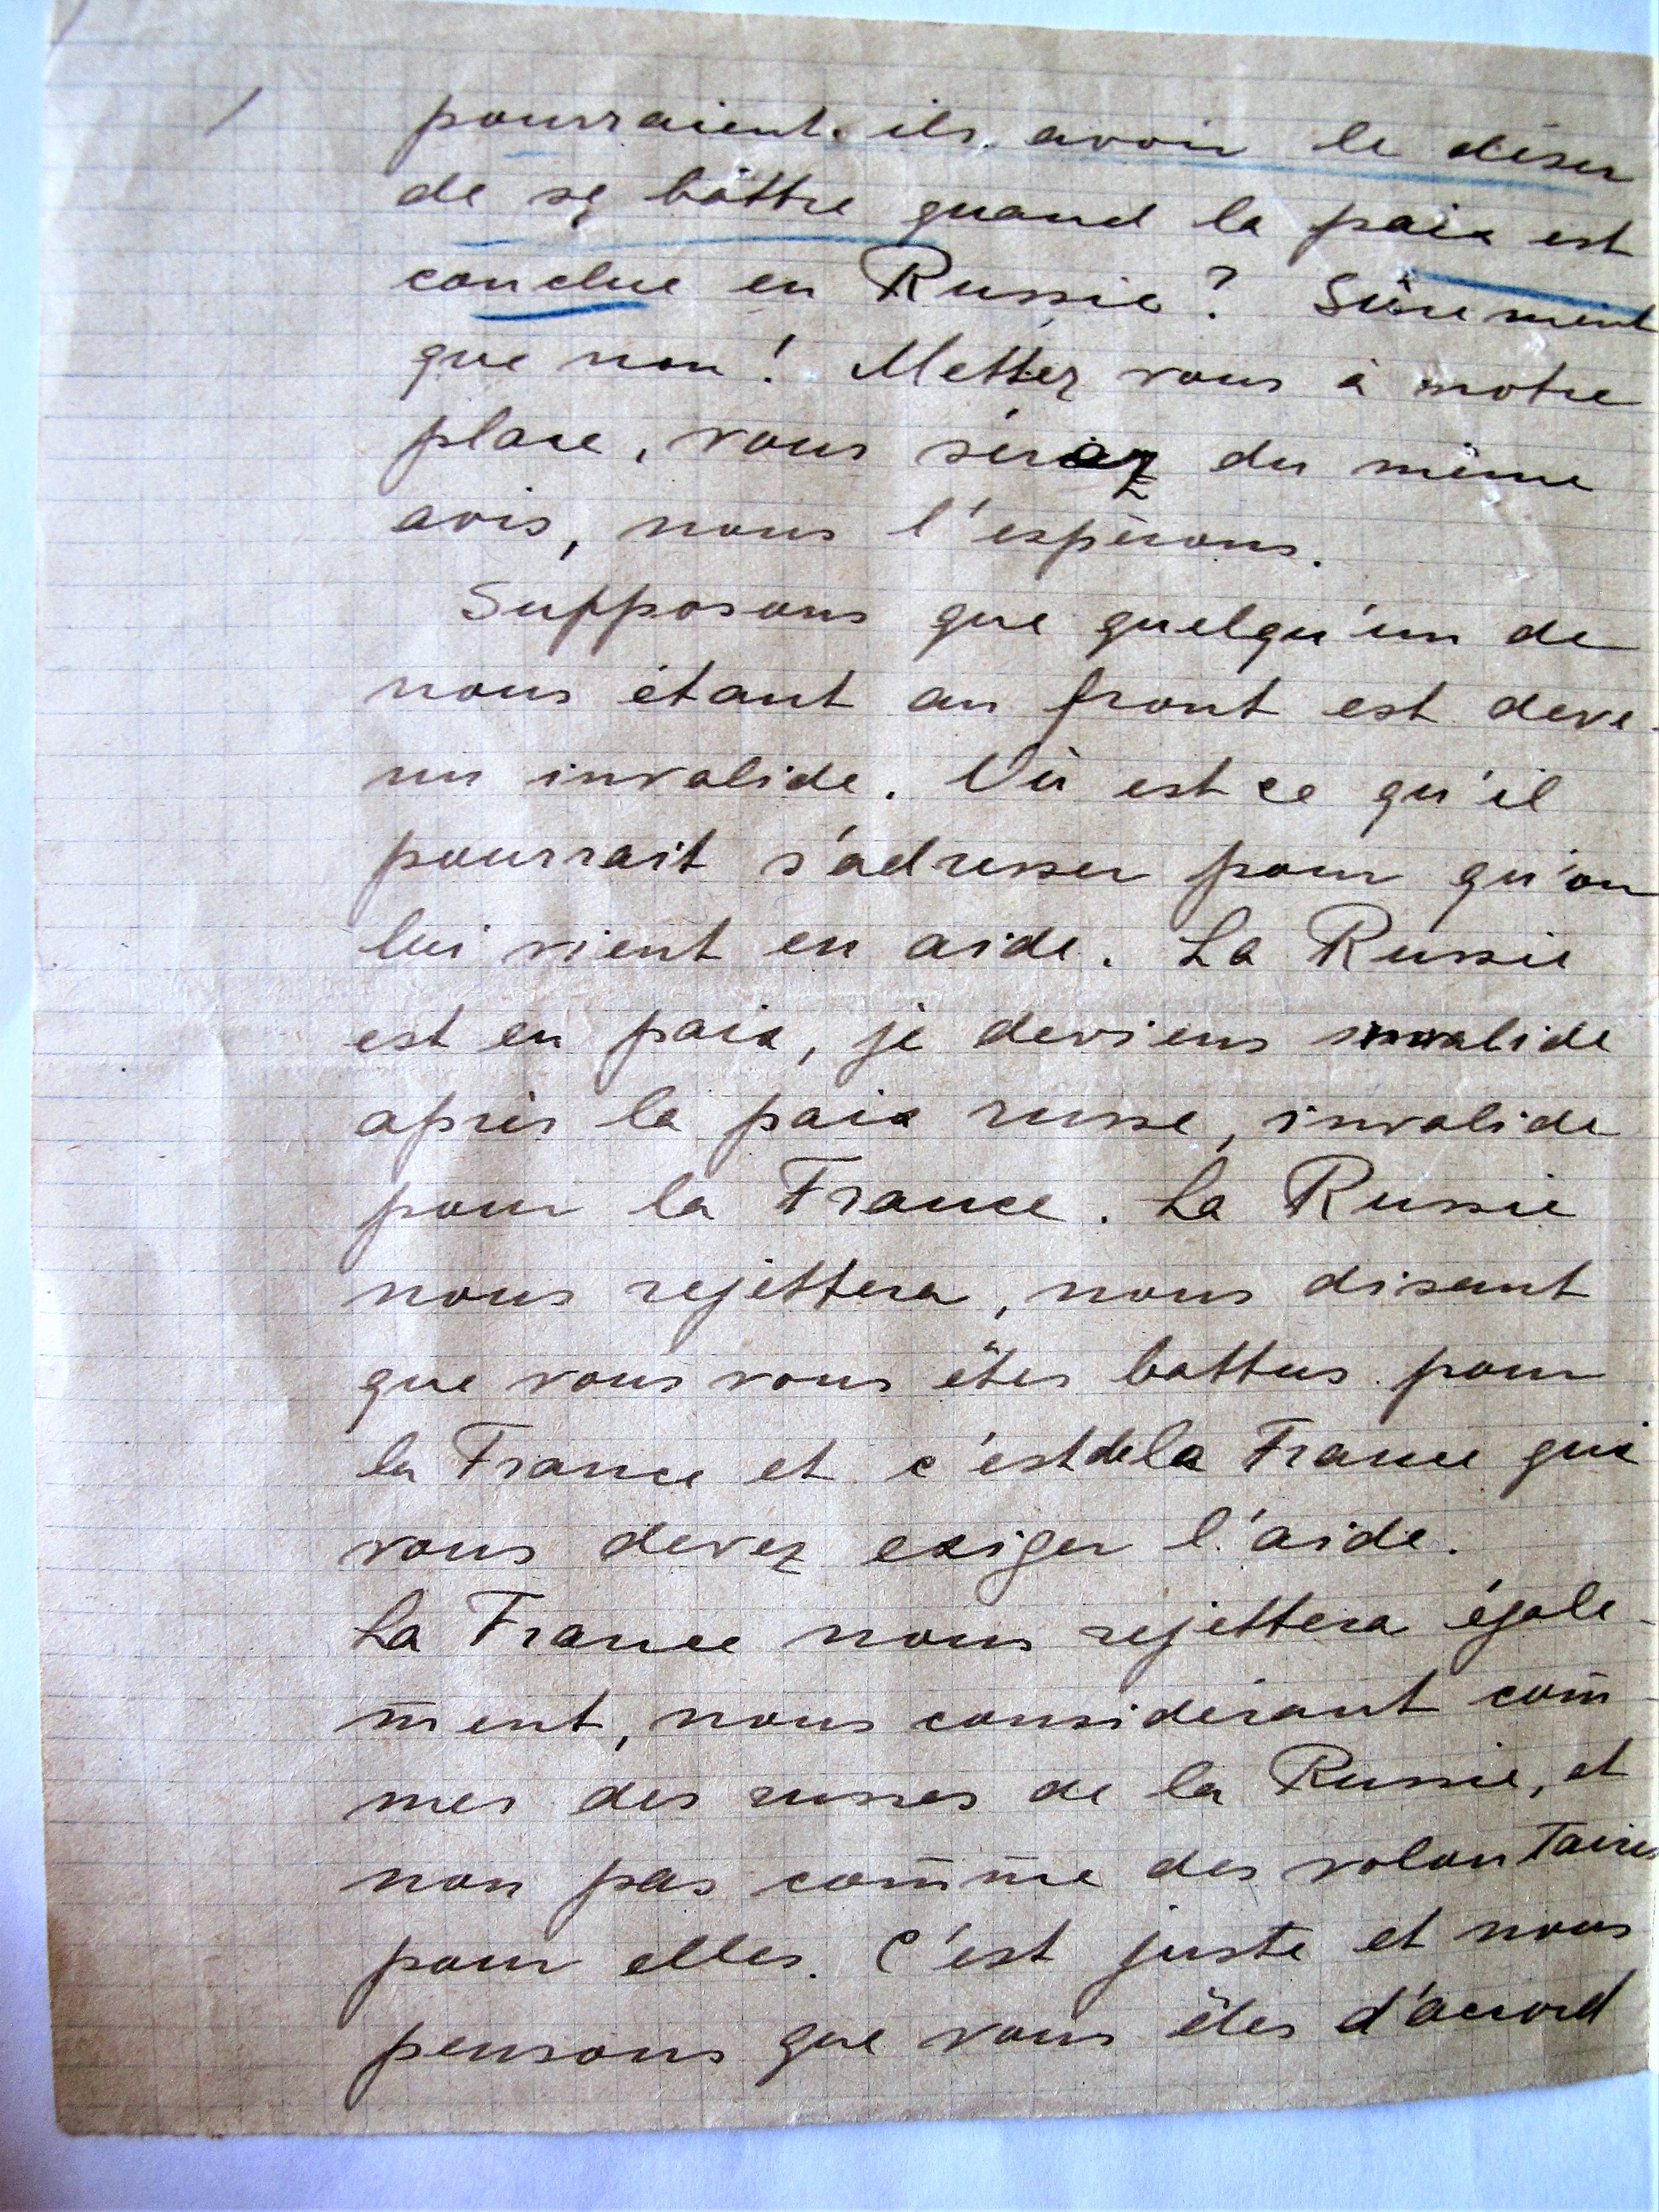 pourraient-ils avoir le désir
de se battre quand la paix est
conclue en Russie? Sûrement
que non! Mettez vous à notre
place, vous sérez du même
avis, nous l'espérons.
Supposons que quelqu'un de
nous étant au front est deve-
nu invalide. Où est ce qu'il
pourrait s'adresser pour qu'on
lui vient en aide. La Russie
est en paix, je deviens invalide
après la paix russe, invalide
pour la France. La Russie
nous rejettera, nous disant
que vous vous êtes battus pour
la France et c'est de la France qui
vous devez exiger l'aide.
La France nous rejettera égale-
ment, nous considérant com-
mes des russes de la Russie, et
non pas comme des volontaires
pour elles. C'est juste et nous
pensons que vous êtes d'accord